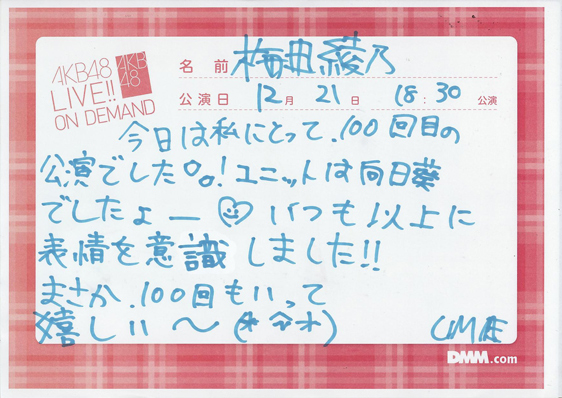 AKB48
LIVE!!
ON DEMAND
AKB
48
名前 梅田綾乃
公演日 12月 21日 18:30 公演
今日は私にとって、100回目の
公演でした。!ユニットは向日葵
でしたよー いつも以上に
表情を意識しました!!
まさか、100回もいって
嬉しい〜(*^^*)
UME
DMM.com